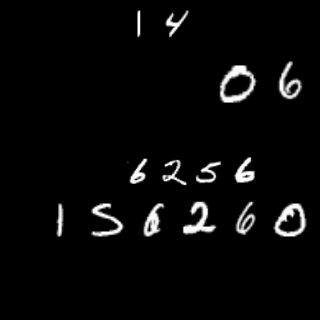 14
06
6256
156260